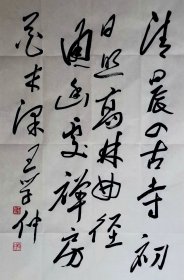 清晨入古寺初
日照高林曲径
通幽处禅房
花木深王学仲